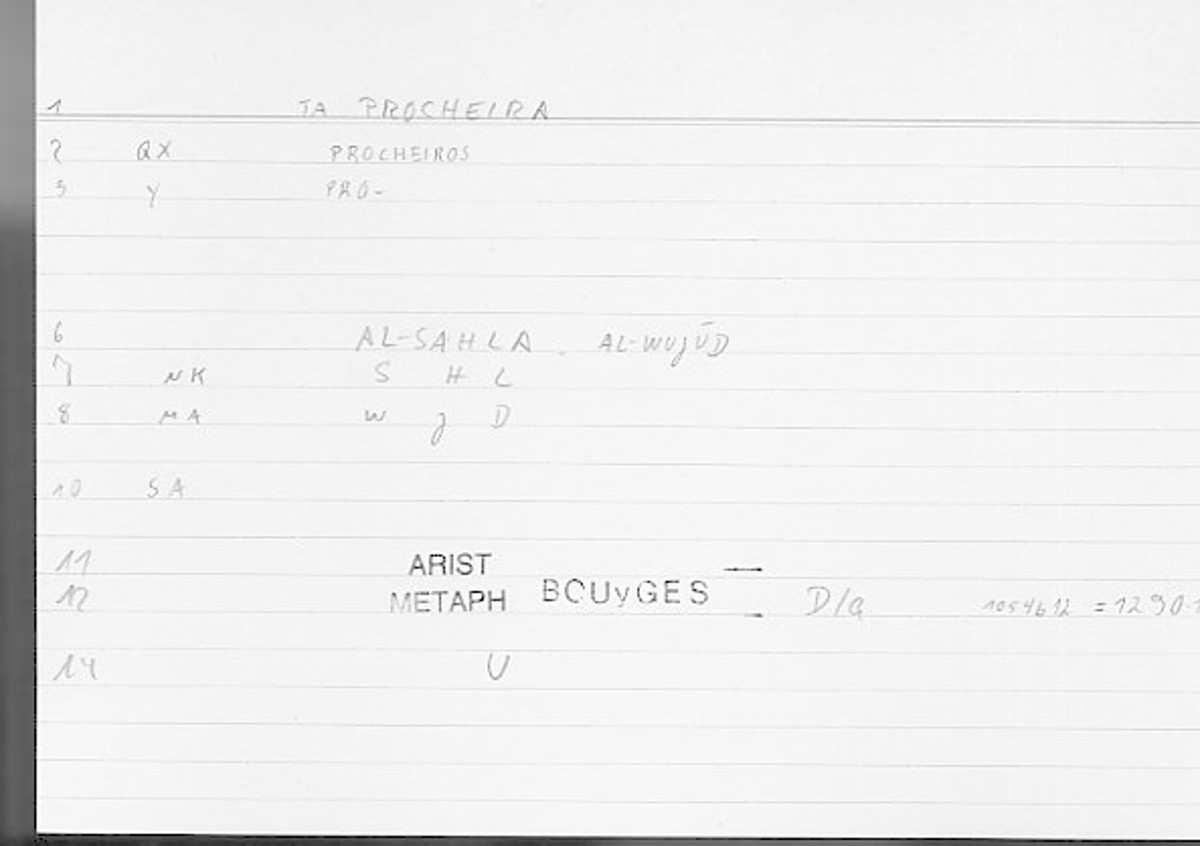 1 TA PROCHEIRA
2 QX PROCHEIROS
3 Y PRO-
6 AL-SAHLA . AL-WUjŪD
7 NK S H L
8 MA W j D
10 SA
11 ARIST
12 METAPH BOUyGES — D/a 1054b12 = 1290.1
14 U